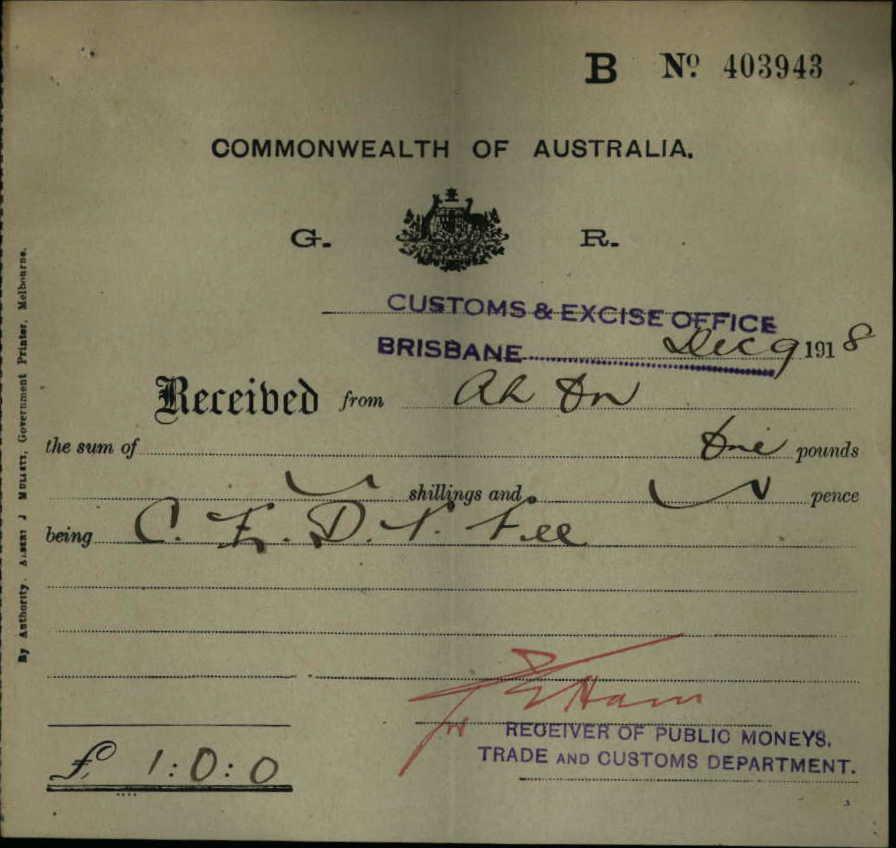 B Nº 403943
COMMONWEALTH OF AUSTRALIA.
G. R.
CUSTOMS & EXCISE OFFICE
BRISBANE Dec 9 1918
Received from Ah On
the sum of One pounds
shillings and pence
being C. E. D. T. Fee
for
RECEIVER OF PUBLIC MONEYS,
TRADE AND CUSTOMS DEPARTMENT.
£ 1:0:0
By Authority. ALBERT J MULLETT, Government Printer, Melbourne.